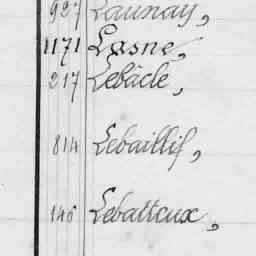 927 Launay,
1171 Lasne,
217 Lebâcle,
814 Lebaillif,
146 Lebatteux,